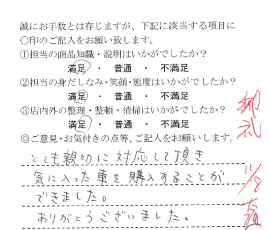 誠にお手数とは存じますが、下記に該当する項目に
○印のご記入をお願い致します。
①担当の商品知識・説明はいかがでしたか?
満足 ・ 普通 ・ 不満足
②担当の身だしなみ・笑顔・態度はいかがでしたか?
満足 ・ 普通 ・ 不満足
③店内外の整理・整頓・清掃はいかがでしたか?
満足 ・ 普通 ・ 不満足
◎ご意見・お気付きの点等、ご記入をお願いします。
とても親切に対応して頂き
気に入った車を購入することが
できました。
ありがとうございました。
御礼
11/8